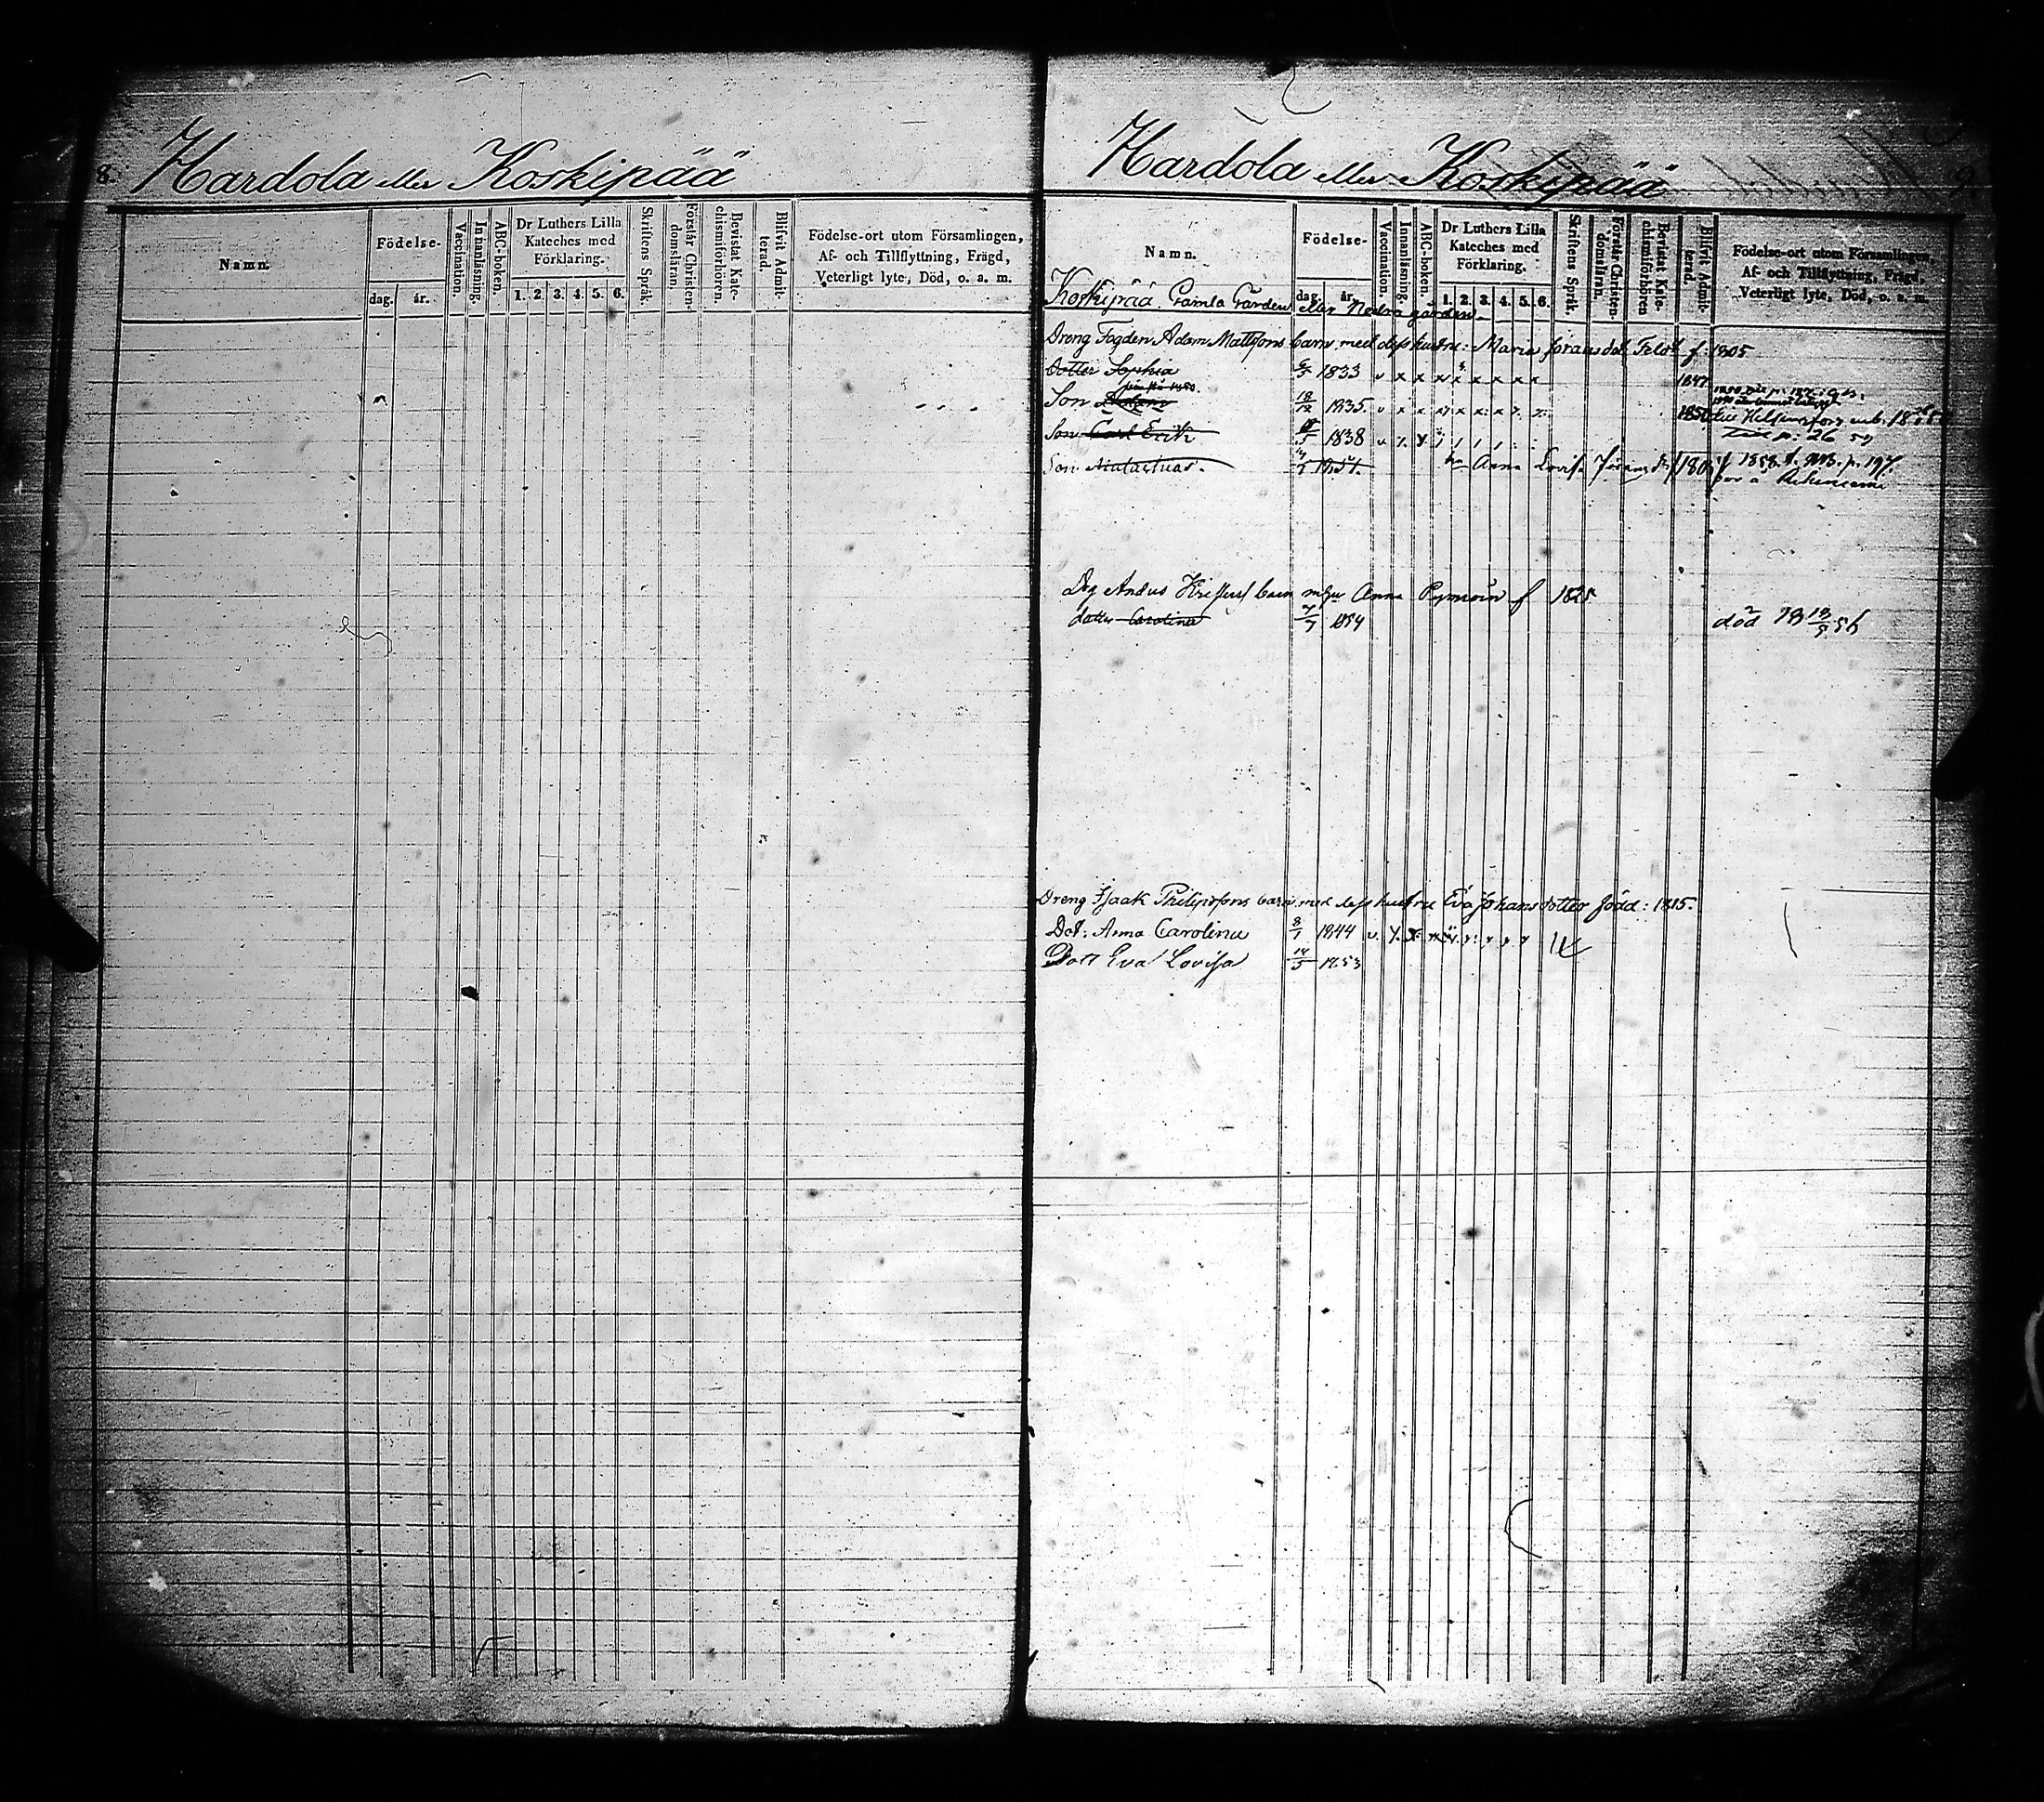 8.
Hardola eller Koskipää
Namn.
Födelse-
dag. år.
Vaccination.
Innanläsning.
ABC-boken.
Dr Luthers Lilla
Kateches med
Förklaring.
1. 2. 3. 4. 5. 6.
Skriftens Språk.
Förstår Christen-
domsläran.
Bevistat Kate-
chismiförhören.
Blifvit Admit-
terad.
Födelse-ort utom Församlingen,
Af- och Tillflyttning, Frägd,
Veterligt lyte, Död, o. a. m.
Hardola eller Koskipää
9
Namn.
Födelse-
dag. år.
Vaccination.
Innanläsning.
ABC-boken.
Dr Luthers Lilla
Kateches med
Förklaring.
1. 2. 3. 4. 5. 6.
Skriftens Språk.
Förstår Christen-
domsläran.
Bevistat Kate-
chismiförhören
Blifvit Admit-
terad.
Födelse-ort utom Församlingen,
Af- och Tillflyttning, Frägd,
Veterligt lyte, Död, o. a. m.
Koskipää Gamla Gården eller Nedra gården.
Dreng Fogden Adam Mattssons barn med dess hustru: Maria f: 1805
Dotter Sophia 1833 v x x x x x x x x 1847
Son Adam 18/12 1835. v x x x x x x 1850 Helsingfors
Son Carl Erik 1838 v p: 26
Son 1851. Anna Lovisa 1858 p. 197.
Drg barn Anna f 1825
dotter Carolina 7/7 1854 död 18 13/5 56
Dreng Isaak Philipssons barn med dess hustru Eva Johansdotter född: 1815.
Dot: Anna Carolina 8/1 1844 v
Dott Eva Lovisa 14/5 1853